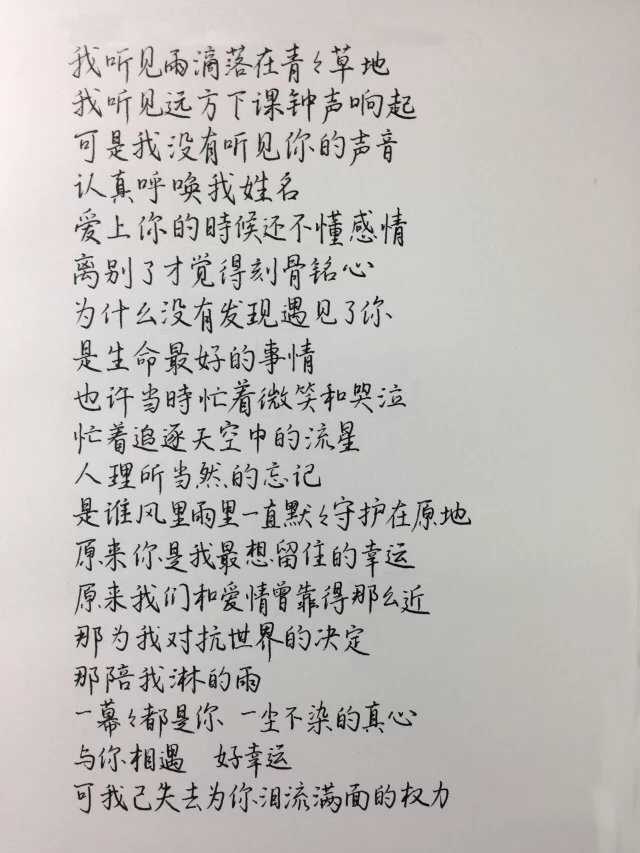 我听见雨滴落在青々草地
我听见远方下课钟声响起
可是我没有听见你的声音
认真呼唤我姓名
爱上你的時候还不懂感情
离别了才觉得刻骨铭心
为什么没有发现遇见了你
是生命最好的事情
也许当時忙着微笑和哭泣
忙着追逐天空中的流星
人理所当然的忘记
是谁风里雨里一直默々守护在原地
原来你是我最想留住的幸运
原来我们和爱情曾靠得那么近
那为我对抗世界的决定
那陪我淋的雨
一幕々都是你 一尘不染的真心
与你相遇 好幸运
可我已失去为你泪流满面的权力